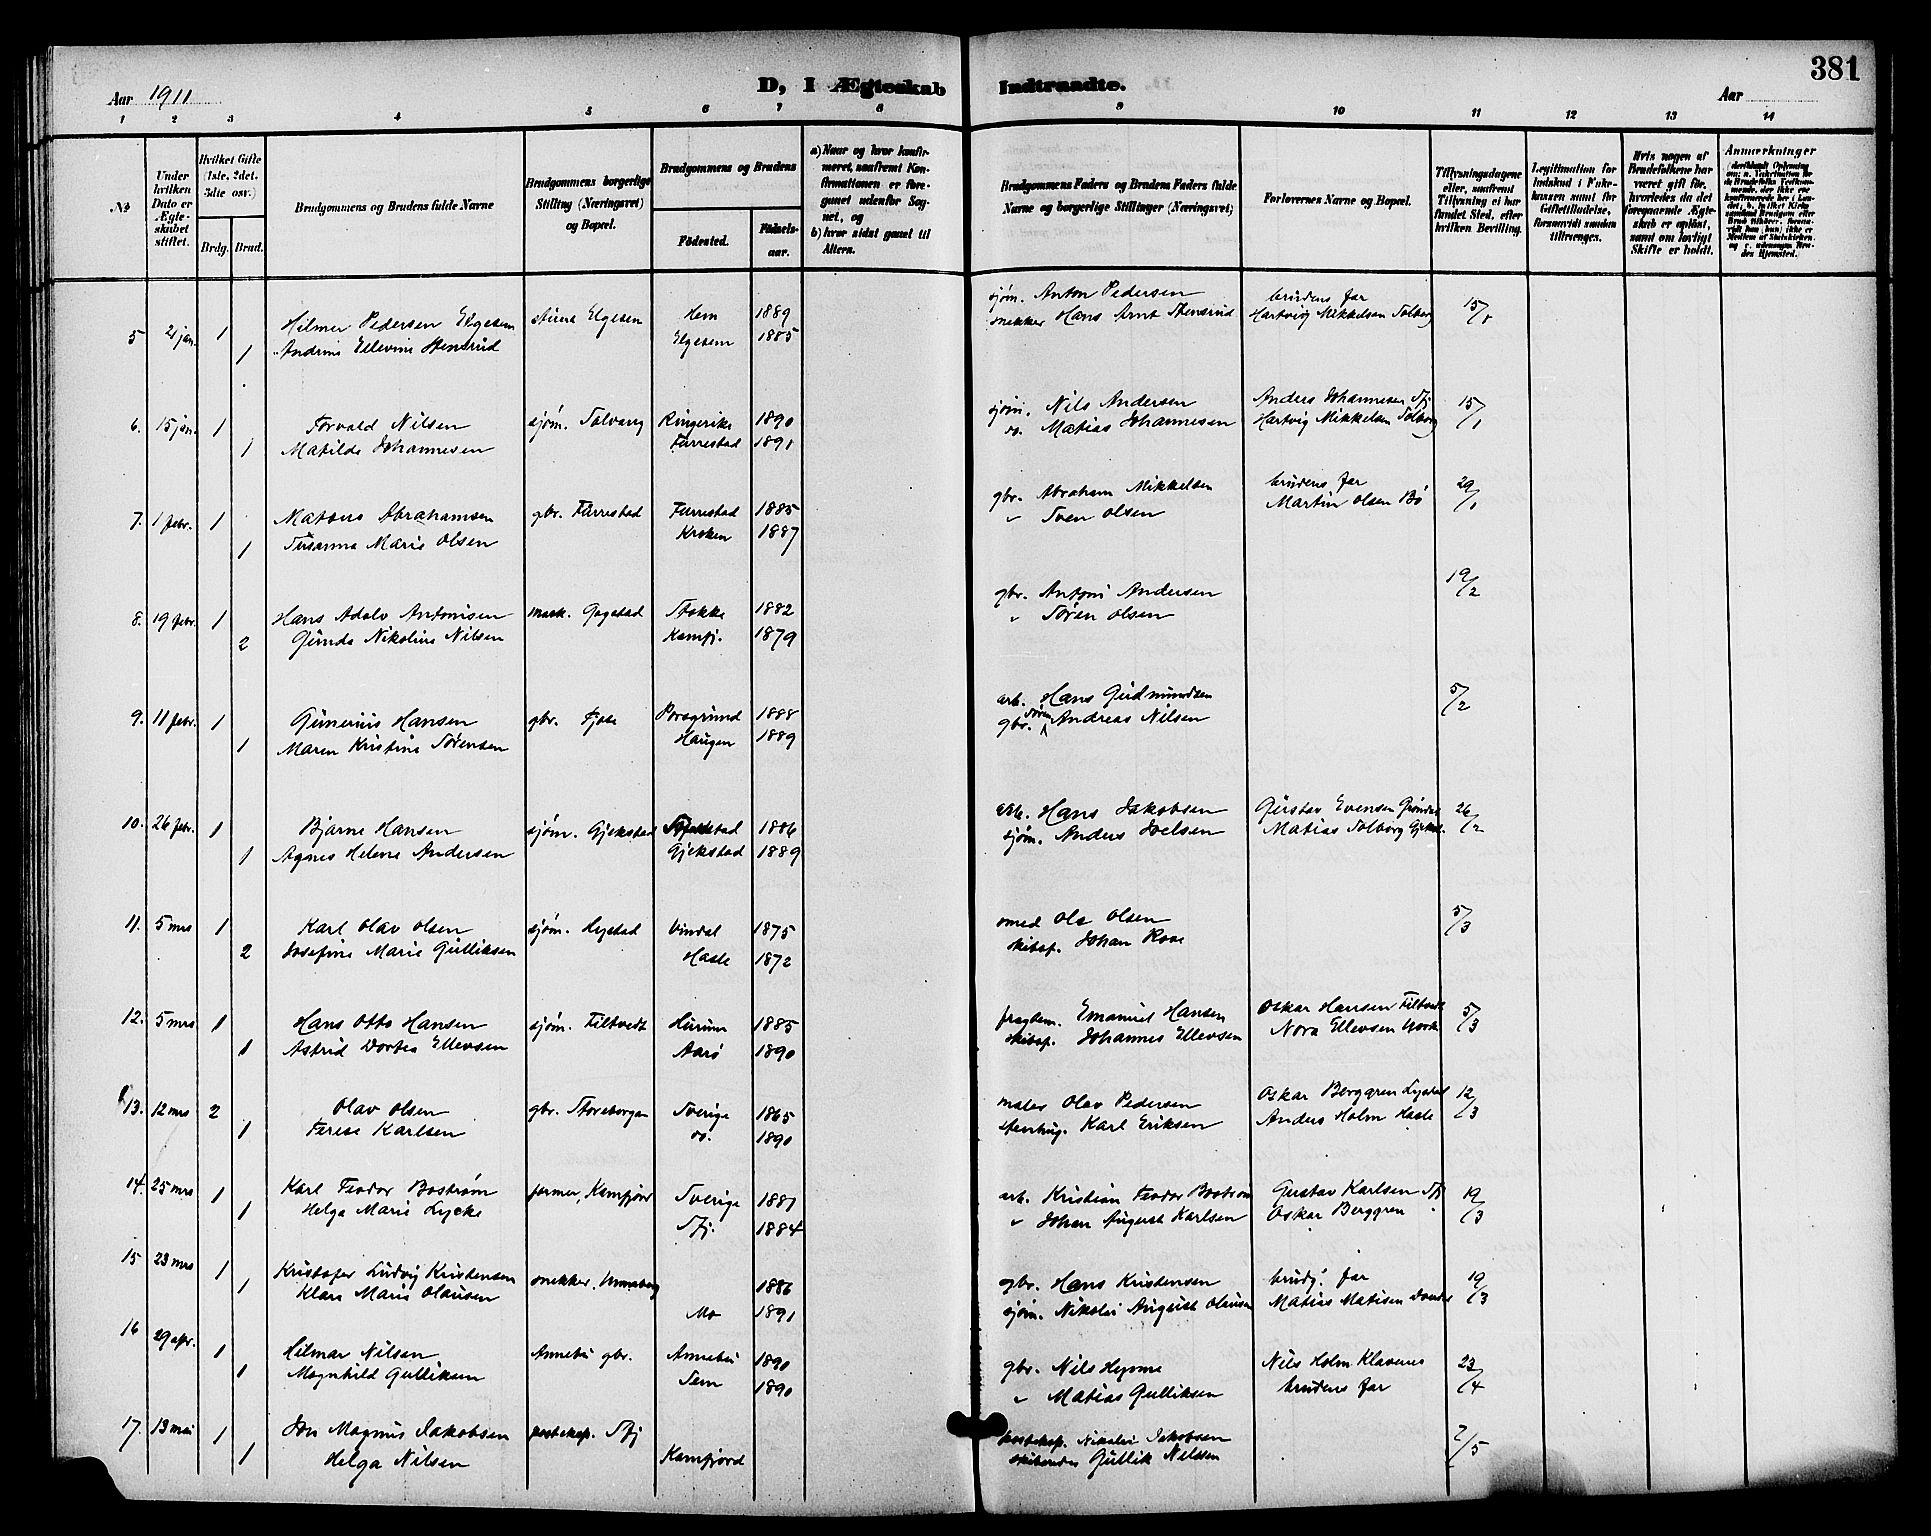 381
Aar 1911
D, I Ægteskab Indtraadte.
Aar
1 2 3 4 5 6 7 8 9 10 11 12 13 14
№
Under hvilken Dato er Ægteskabet stiftet.
Hvilket Gifte (1ste, 2det, 3die osv.)
Brdg. Brud.
Brudgommens og Brudens fulde Navne
Brudgommens borgerlige Stilling (Næringsvei) og Bopæl.
Brudgommens og Brudens
Födested.
Födselsaar.
a) Naar og hvor konfirmeret, saafremt Konfirmationen er foregaaet udenfor Sognet, og
b) hvor sidst gaaet til Altern.
Brudgommens Faders og Brudens Faders fulde Navne og borgerlige Stillinger (Næringsvei)
Forlovernes Navne og Bopæl.
Tillysningsdagene eller, saafremt Tillysning ei har fundet Sted, efter hvilken Bevilling.
Legitimation for Indskud i Enkekassen samt for Giftetilladelse, forsaavidt saadan tiltrænges.
Hvis nogen af Brudefolkene har været gift för, hvorledes da det foregaaende Ægteskab er oplöst, samt om lovligt Skifte er holdt.
Anmærkninger
5 2 jan. 1 Hilmer Pedersen Elgesem Elgesem Hem 1889 sjøm. Anton Pedersen brudens far 15/1
1 Andrine Ellevine Stensrud Elgesem 1885 snekker Hans Arnt Stensrud Hartvig Mikkelsen Solberg
6. 15 jan. 1 Torvald Nilsen sjøm. Solvang Ringerike 1890 sjøm. Nils Andersen Anders Johannesen Sfj 15/1
1 Matilde Johannesen Furrestad 1891 do. Matias Johannesen Hartvig Mikkelsen Solberg
7. 1 febr. 1 Mataus Abrahamsen gbr. Furrestad Furrestad 1885 gbr. Abraham Mikkelsen brudens far 29/1
1 Susanna Marie Olsen Kroken 1887 " Sven Olsen Martin Olsen Bø
8. 19 febr. 1 Hans Adolv Antonisen mask. Gogstad Stokke 1882 gbr. Antoni Andersen 19/2
2 Gunda Nikoline Nilsen Kamfj. 1879 " Søren Olsen
9. 11 febr. 1 Gunerius Hansen gbr. Porsgrund 1888 arb. Hans Gudmundsen 5/2
1 Maren Kristine Sørensen Haugen 1889 gbr. Søren Andreas Nilsen
10. 26 febr. 1 Bjarne Hansen sjøm. Gjekstad 1886 arb. Hans Jakobsen Gustav Evensen 26/2
1 Agnes Helene Andersen Gjekstad 1889 sjøm. Anders Joelsen Matias Solberg Gjekst.
11. 5 mrs 1 Karl Olav Olsen sjøm. Lystad Vindal 1875 smed Ole Olsen 5/3
2 Josefine Marie Gulliksen Hasle 1872 skibsf. Johan Roae
12. 5 mrs 1 Hans Otto Hansen sjøm. Filtvedt Hurum 1885 Emanuel Hansen Oskar Hansen Filtvedt 5/3
1 Astrid Dortea Ellevsen Aarø 1890 skibsf. Johannes Ellevsen Nora Ellevsen
13. 12 mrs 2 Olav Olsen gbr. Storeborgen Sverige 1865 maler Olav Pedersen Oskar Berggren Lystad 12/3
1 Terese Karlsen do. 1890 stenhug. Karl Eriksen Anders Holm Hasle
14. 25 mrs 1 Karl Teodor Bostrøm former, Kamfjord Sverige 1881 arb. Kristian Teodor Bostrøm Gustav Karlsen Sfj 19/3
1 Helga Marie Lycke Sfj. 1884 " Johan August Karlsen Oskar Berggren
15 23 mrs 1 Kristofer Ludvig Kristensen snekker, Unneberg 1886 gbr. Hans Kristensen brudg. far 19/3
1 Klara Marie Olausen Mo 1891 sjøm. Nikolai August Olausen Matias Matisen
16 29 apr. 1 Hilmar Nilsen Annebu gbr. Annebu 1890 gbr. Nils Nils Holm Klavenes 23/4
1 Magnhild Gulliksen Sem 1890 " Matias Gulliksen brudens far
17. 13 mai 1 Jon Magnus Jakobsen posteksp. Sfj posteksp. Nikolai Jakobsen 7/5
1 Helga Nilsen Kamfjord Gullik Nilsen